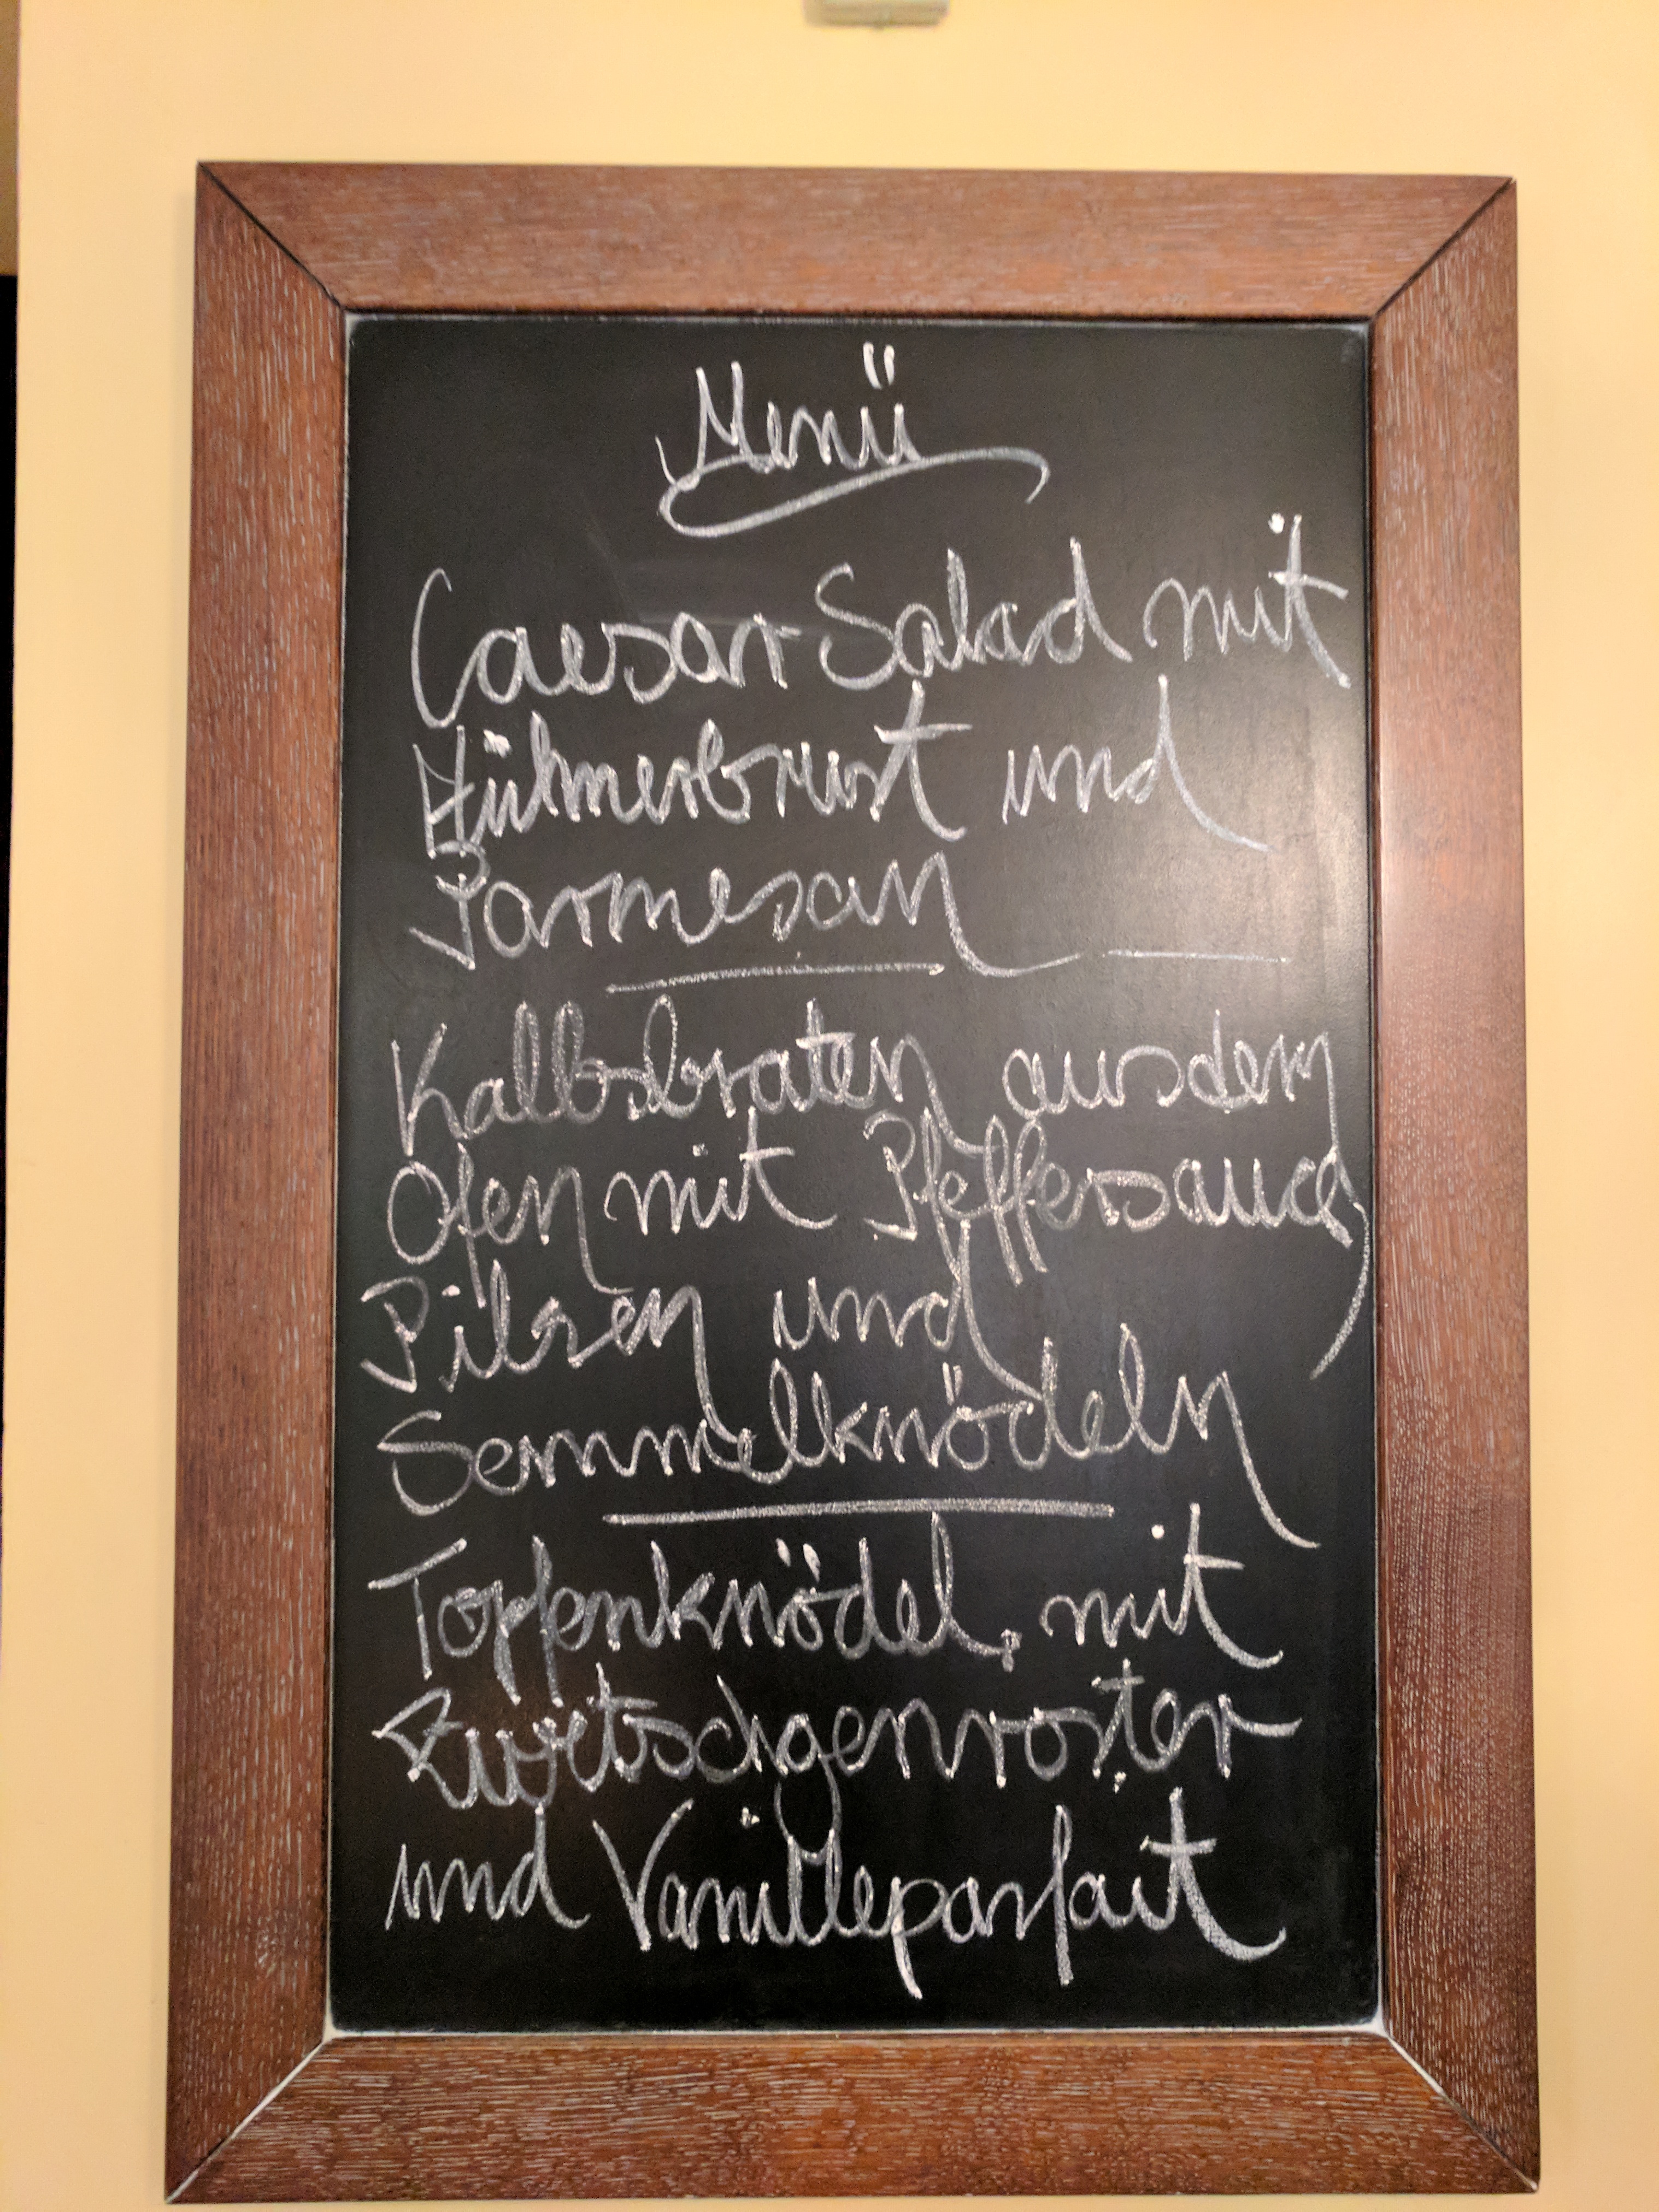 Menü
Caesar Salad mit
Hühnerbrust und
Parmesan
Kalbsbraten aus dem
Ofen mit Pfeffersauce
Pilzen und
Semmelknödeln
Topfenknödel, mit
Zwetschgenroster
und Vanilleparfait